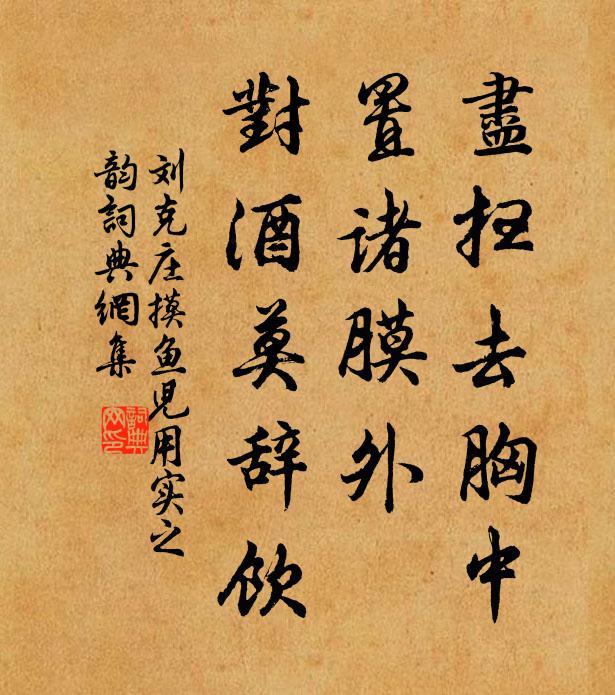 盡扫去胸中
置诸膜外
對酒莫辞飲
刘克庄摸鱼児用实之
韵詞典網集
詞典
网印